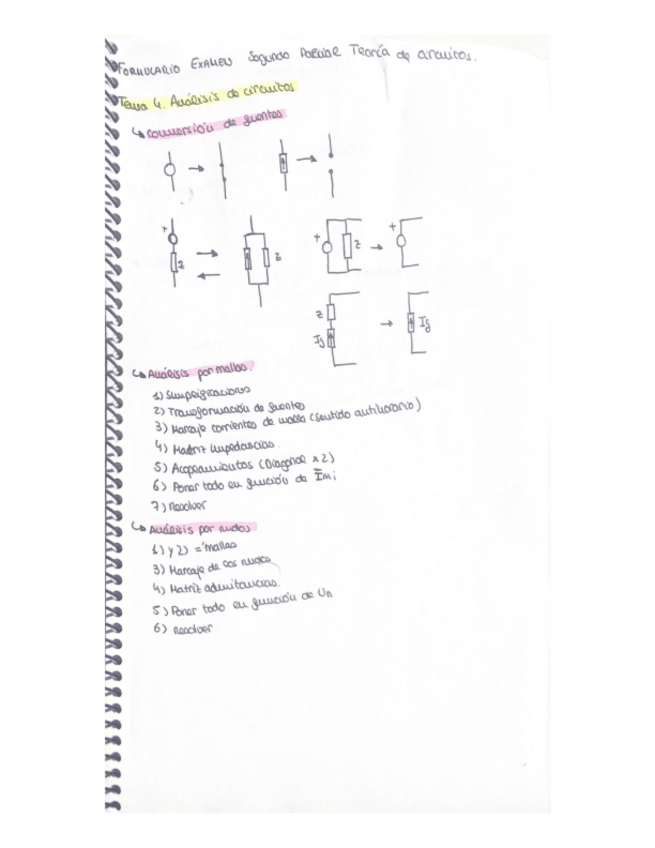 FORMULARIO EXAMEN Segundo PARCIAL Teoría de circuitos.
Tema 4. Análisis de circuitos
↳ conversión de fuentes
+ Z Z + Z +
Z Ig Ig
↳ Análisis por mallas.
1) Simplificaciones
2) Transformación de fuentes
3) Marcaje corrientes de malla (sentido antihorario)
4) Matriz impedancias.
5) Acoplamientos (Diagonal x2)
6) Poner todo en función de Imi
7) Resolver
↳ Análisis por nudos
1) y 2) = mallas
3) Marcaje de los nudos
4) Matriz admitancias.
5) Poner todo en función de Un
6) Resolver